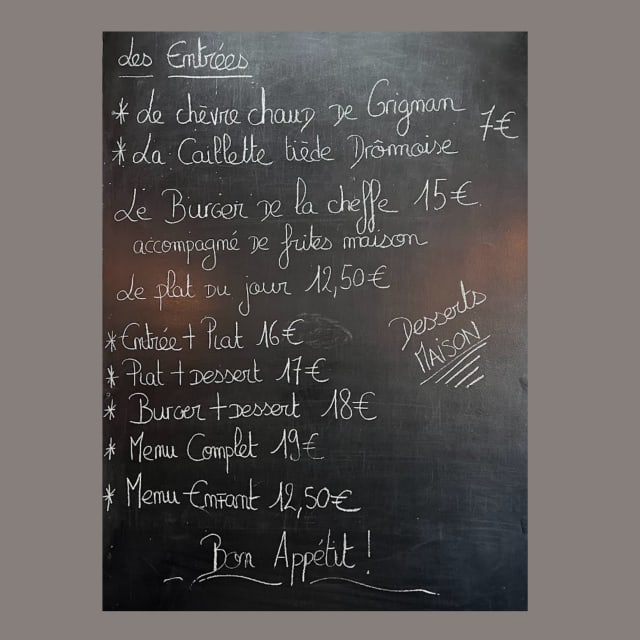 Les Entrées
* Le chèvre chaud de Grignan
7€
* La Caillette tiède Drômoise
Le Burger de la cheffe 15€
accompagné de frites maison
Le plat du jour 12,50€
Desserts
MAISON
* Entrée + Plat 16€
* Plat + Dessert 17€
* Burger + Dessert 18€
* Menu Complet 19€
* Menu Enfant 12,50€
Bon Appétit !